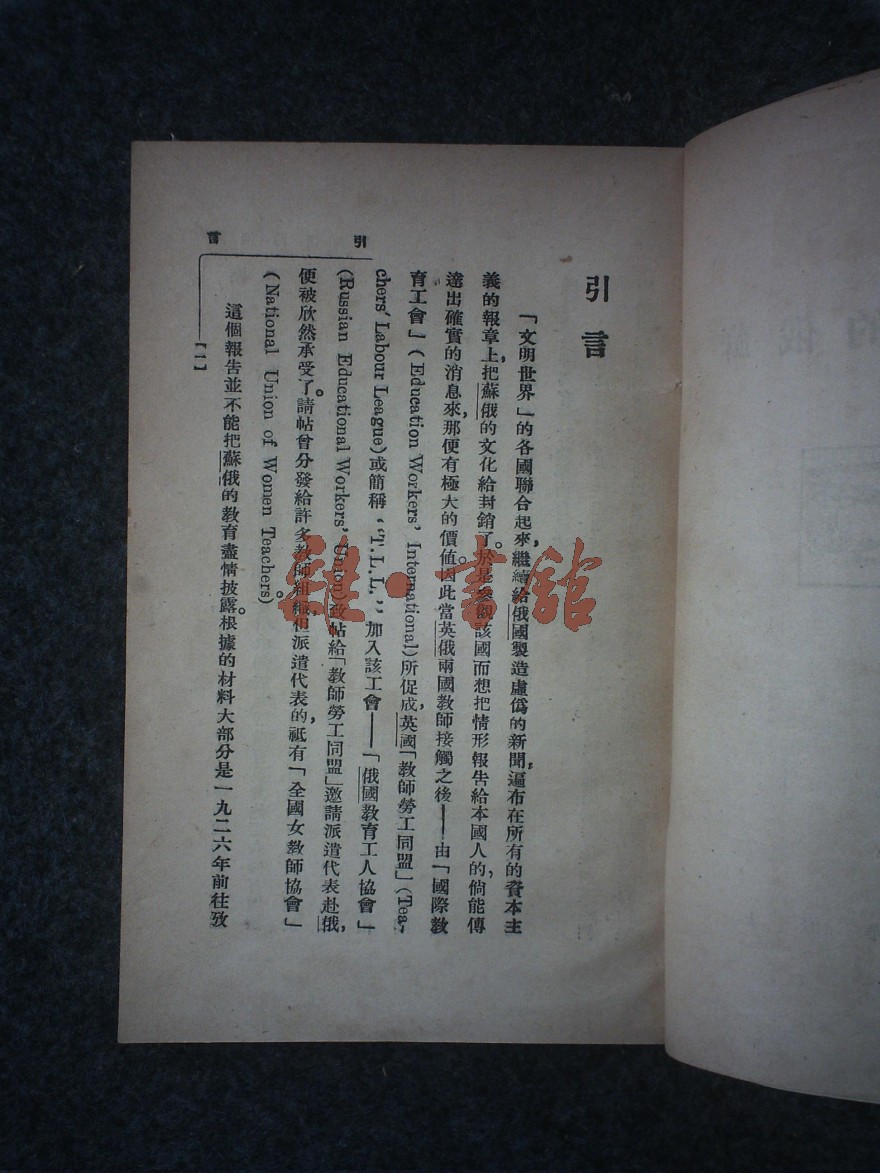 引言
「文明世界」的各國聯合起來，繼續給俄國製造虛僞的新聞，遍布在所有的資本主
義的報章上，把蘇俄的文化給封銷了。於是參觀該國而想把情形報告給本國人的，倘能傳
達出確實的消息來，那便有極大的價值。因此當英俄兩國教師接觸之後——由「國際教
育工會」(Education Workers' International)所促成，英國「教師勞工同盟」(Tea-
chers' Labour League)或簡稱“T.L.L.”加入該工會——「俄國教育工人協會」
(Russian Educational Workers' Union)致帖給「教師勞工同盟」邀請派遣代表赴俄，
便被欣然承受了。請帖曾分發給許多教師組織，但派遣代表的，祗有「全國女教師協會」
(National Union of Women Teachers)。
這個報告並不能把蘇俄的教育盡情披露。根據的材料大部分是一九二六年前往攷
引言
【一】
雜·書館